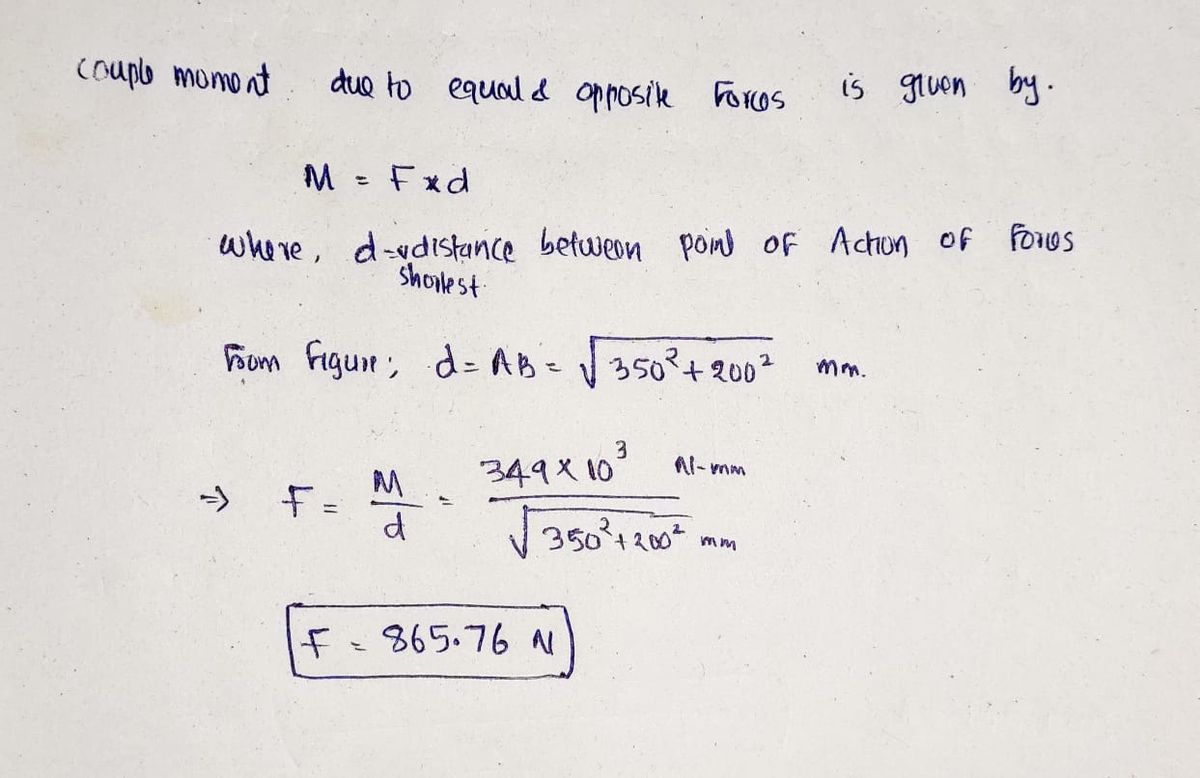 couple moment due to equal & opposite Forces is given by.
M = F x d
where, d → distance between point OF Action OF Forces
shortest
From Figure; d = AB = √350² + 200² mm.
⇒ F = M/d = 349 x 10³ N-mm / √350² + 200² mm
F = 865.76 N